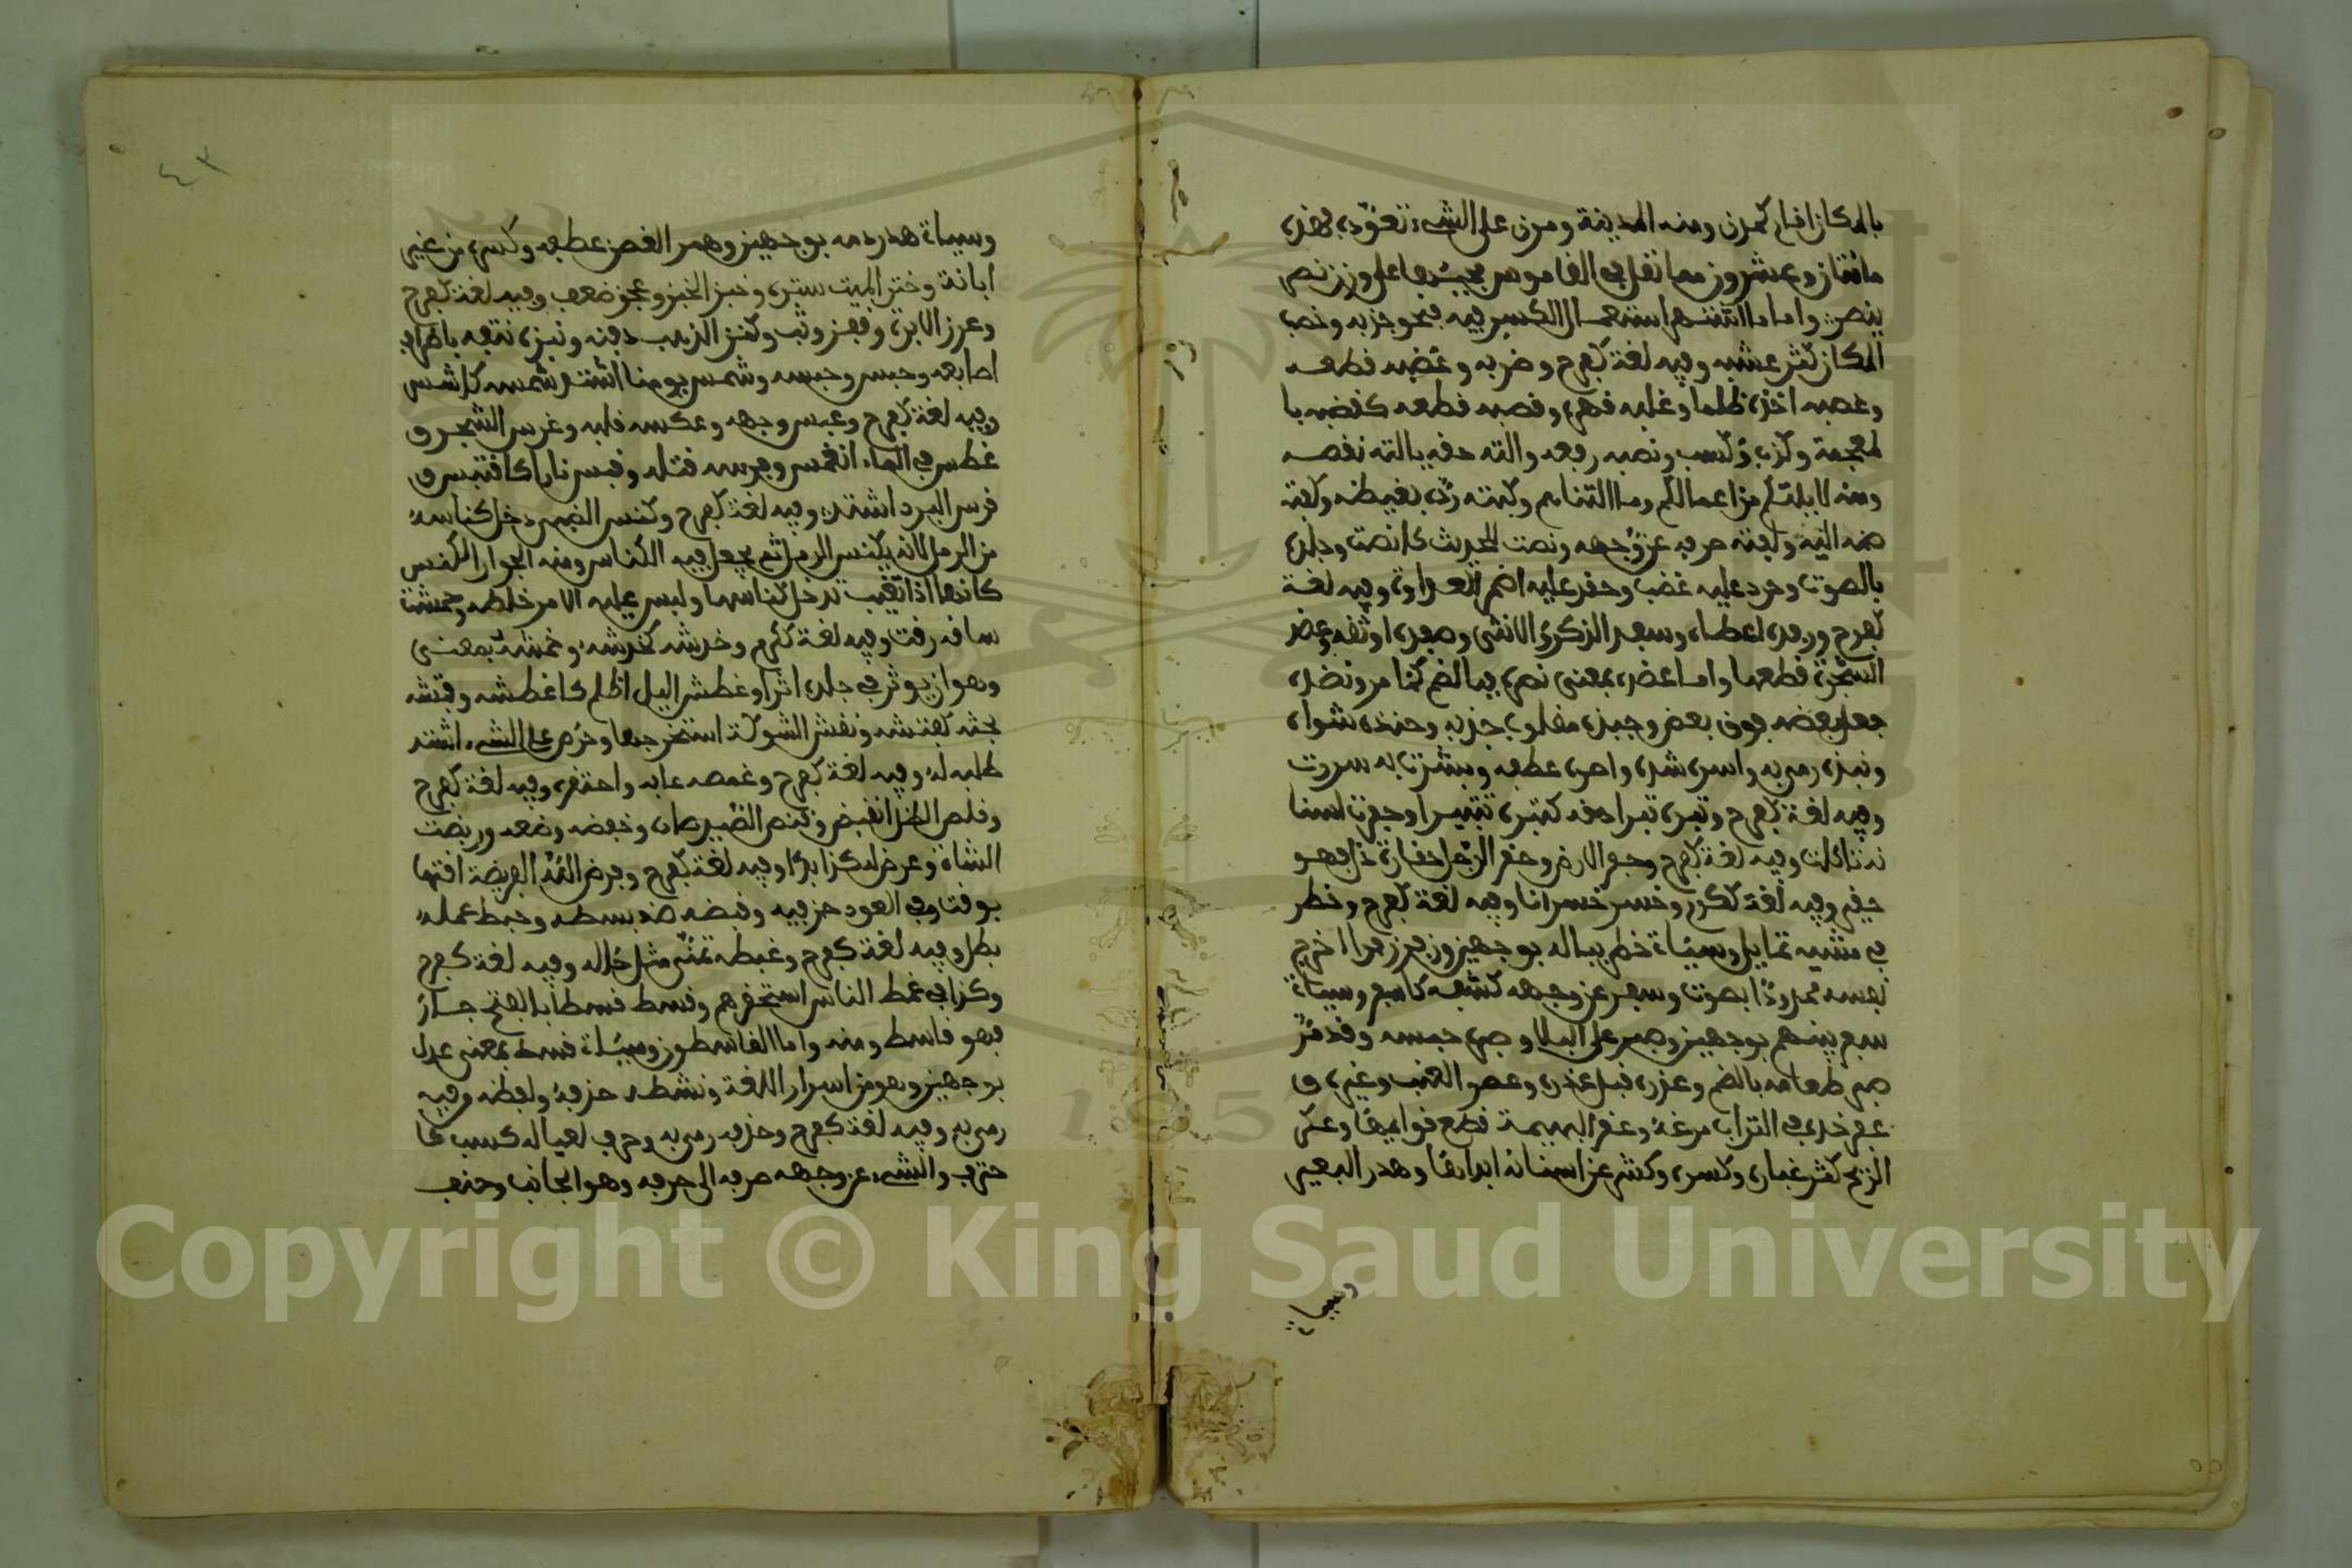 بالمكان اقام كمدن ومنه المدينة ومرن على الشيء تعوّده فهذه
مائتان وعشرون مما نقل في القاموس مجيئها على وزن نصر
ينصر واما ما اشتهر استعمال الكسر فيه فنحو جذبه وخصب
المكان كثر عشبه وفيه لغة كفرح وضربه وعضبه قطعه
وغصبه اخذه ظلما وغلبه قهره وقصبه قطعه كقضبه با
لمعجمة وكذب وكسب ونصبه رفعه والته حقه يالته نقصه
ومنه لا يلتكم من اعمالكم وما التناهم وكبته رده بغيظه وكفته
ضمه اليه ولفته صرفه عن وجهه ونصت للحديث كانصت وجلده
بالصوت وحرد عليه غضب وحقد عليه اضمر العداوة وفيه لغة
كفرح ورفده اعطاه وسفد الذكر الانثى وصفده اوثقه وعضد
الشجرة قطعها واما عضده بمعنى نصره فبالضم كما مر ونضده
جعل بعضه فوق بعض وجبذه مقلوب جذبه وحنذه شواه
ونبذه رمى به واسره شده واصره عطفه وبشرت به سررت
وفيه لغة كفرح وتبره تبرا اهلكه كتبره تتبيرا وحفرت اسنا
نه تاكلت وفيه لغة كفرح وحفر الارض وخفر الرجل خفارة فهو
خفير وفيه لغة كنصر وخسر خسرانا وفيه لغة كفرح وخطر
في مشيه تمايل وسيأتي خطر بباله بوجهين وزفر زفرا اخرج
نفسه ممدودًا بصوت وسفر عن وجهه كشفه كاسفر وسيأتي
سفر بينهم بوجهين وصبر على البلاء وصبره حبسه وقد مرّ
صبر طعامه بالضم وعذره قبل عذره وعصر العنب وغيره و
عفر خده في التراب مرغه وعقر البهيمة قطع قوائمها وعكر
الريح كثر غباره وكسره وكشر عن اسنانه ابداها وهدر البعير
وسيأتي
٤٣
وسيأتي هدر دمه بوجهين وهصر الغصن عطفه وكسره من غير
ابانة وخنز الميت ستره وخبز الخبز وعجز ضعف وفيه لغة كفرح
وغرز الابرة وقفز وثب وكنز الذهب دفنه ونبزه نتفه باطراف
اصابعه وحبس وحبسه وشمس يومنا اشتد شمسه كاشمس
وفيه لغة كفرح وعبس وجهه وعكسه قلبه وغرس الشجر و
غطس في الماء انغمس وفرسه قتله وقبس نارا كاقتبس و
قرس البرد اشتد وفيه لغة كفرح وكنس الظبي دخل كناسه
من الرمل لانه يكنس الرمل ثم يجعل فيه الكناس ومنه الجوار الكنس
كانها اذا تغيب تدخل كناسها ولبس عليه الامر خلطه وحمشت
ساقه رقت وفيه لغة ككرم وخدشه كخرشه وخمشه بمعنى
وهو ان يوثر في جلده اثرا وغطش اليل اظلم كاغطش وفتشه
بحثه كفتشه ونقش الشوكة استخرجها وحرص على الشيء اشتد
طلبه له وفيه لغة كفرح وغمصه عابه واحتقره وفيه لغة كفرح
وقلص الظل انقبض وقنص الصيد صاده وخفضه وضعه وربضت
الشاة وعرض له كذا بدا وفيه لغة كفرح وفرض الله الفريضة اقتها
بوقت وفي العود حز فيه وقبضه ضد بسطه وحبط عمله
بطل وفيه لغة كفرح وغبطه تمنى مثل حاله وفيه لغة كفرح
وكذا في غمط الناس استحقرهم وقسط قسطا بالفتح جار
فهو قاسط ومنه واما القاسطون وسيأتي قسط بمعنى عدل
بوجهين وهو من اسرار اللغة ونشطه حزفه ولفظه وفيه
رمى به وفيه لغة كفرح وحذف رمى به وحرف لعياله كسب كا
حترف والشيء عن وجهه صرفه الى حرفه وهو الجانب وحنف